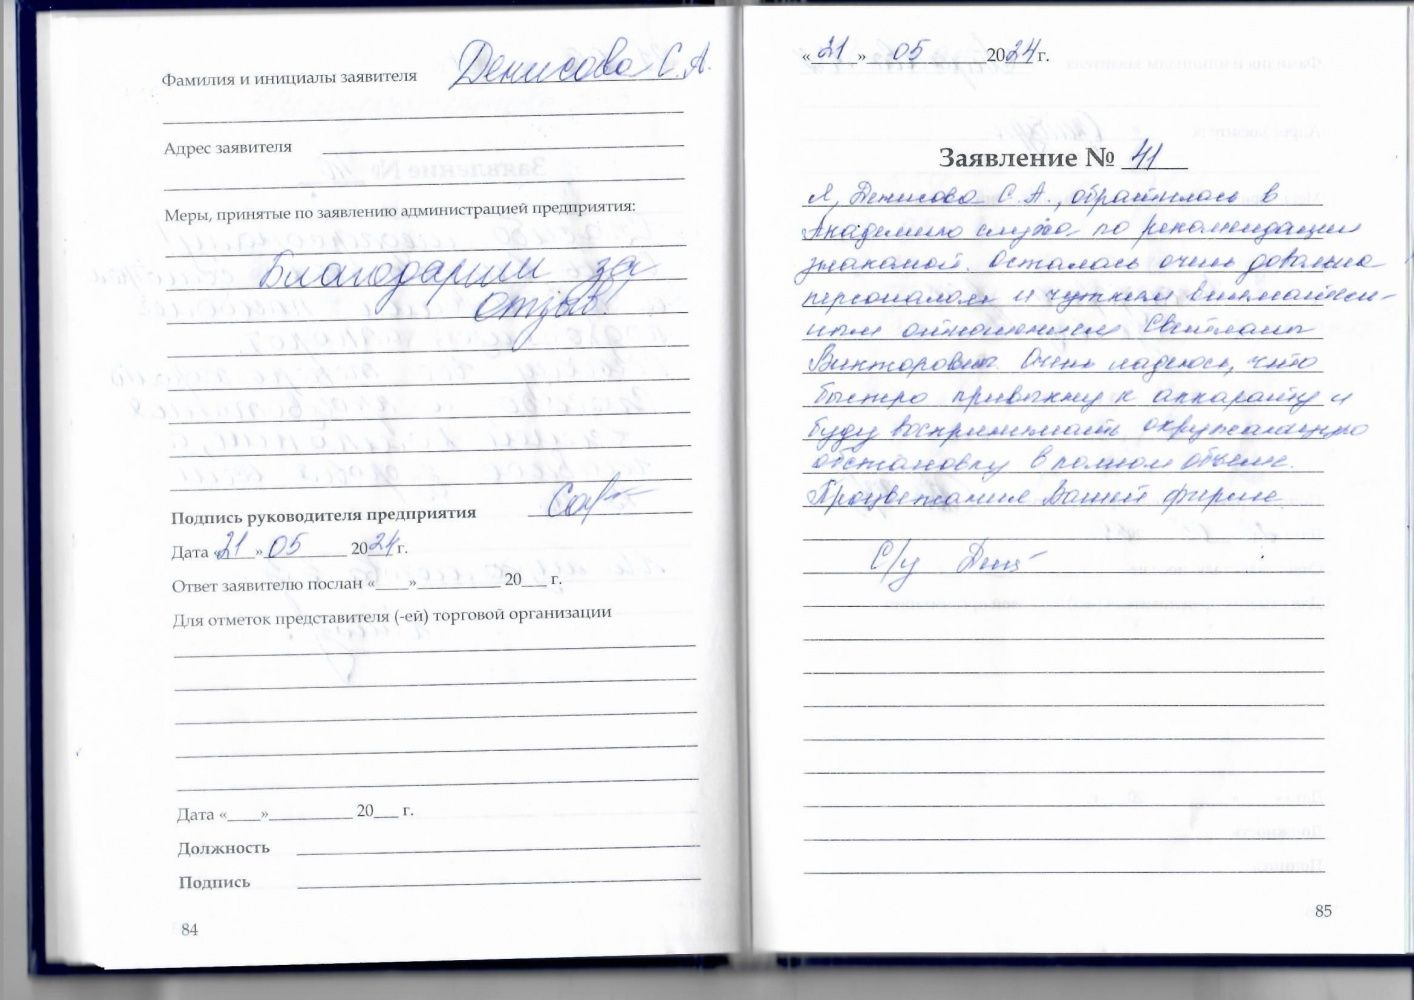 Фамилия и инициалы заявителя Денисова С.А.
Адрес заявителя
Меры, принятые по заявлению администрацией предприятия:
Благодарим за
отзыв!
Подпись руководителя предприятия
Дата «21» 05 2024 г.
Ответ заявителю послан «____»__________ 20___ г.
Для отметок представителя (-ей) торговой организации
Дата «____»__________ 20___ г.
Должность
Подпись
84
«21» 05 2024 г.
Заявление № 41
Я, Денисова С.А., обратилась в
Академию слуха по рекомендации
знакомой. Осталась очень довольна
персоналом и чутким вниматель-
ным отношением Светланы
Викторовны. Очень надеюсь, что
быстро привыкну к аппарату и
буду воспринимать окружающую
обстановку в полном объеме.
Процветания Вашей фирме.
С/у
85